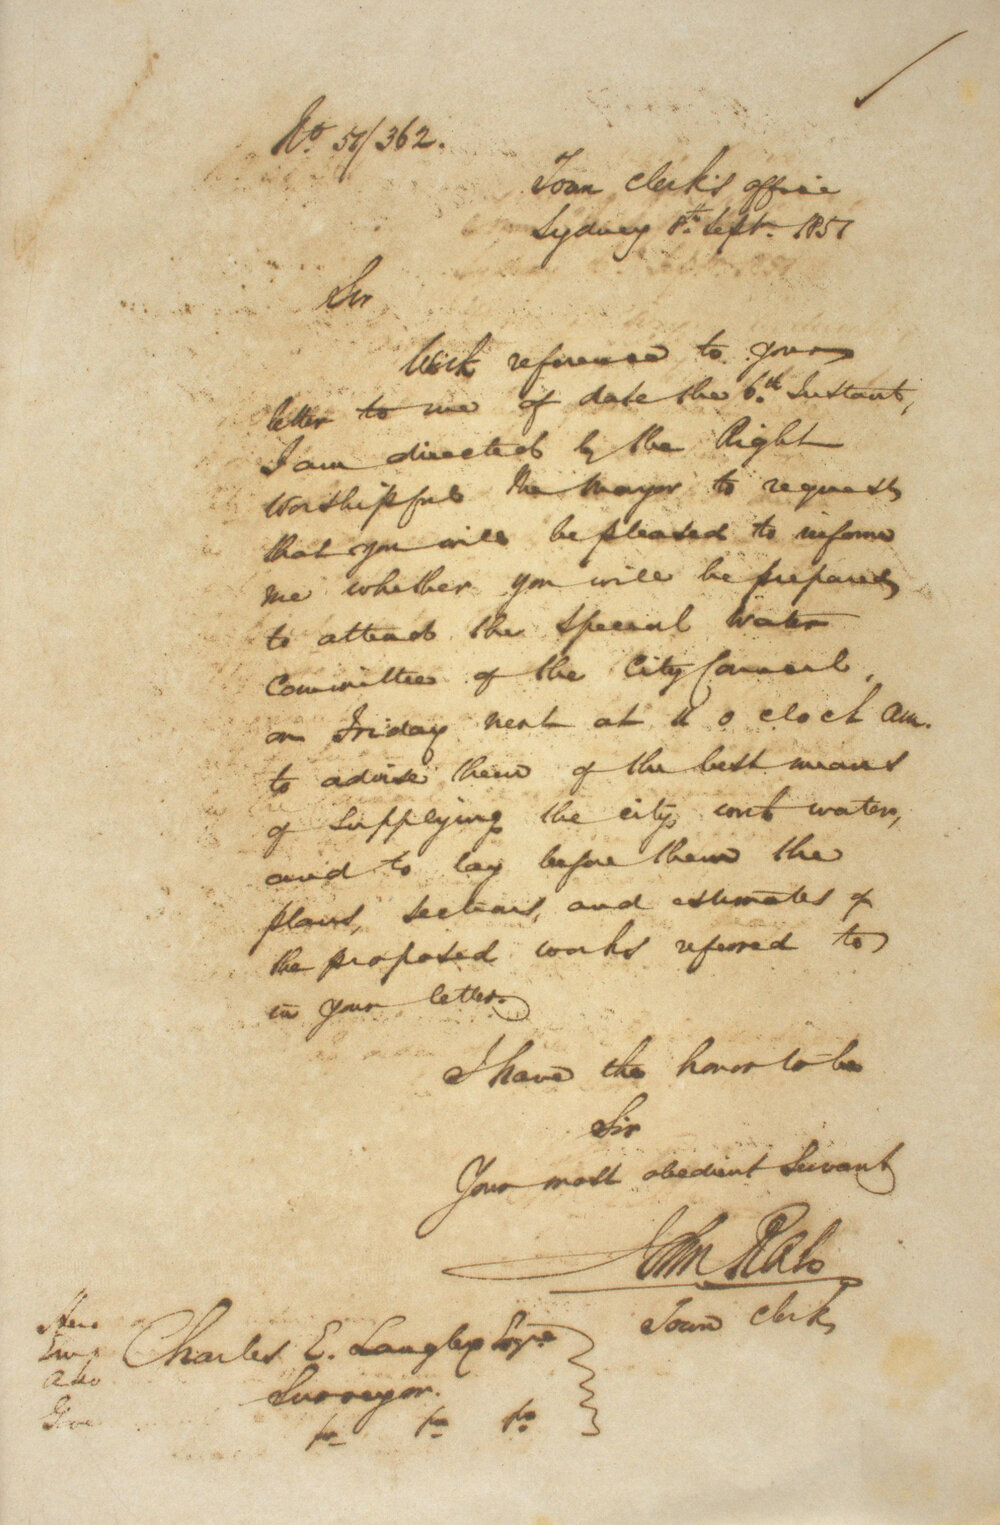 No. 51/362.
Town Clerk's office
Sydney 8th Sept. 1851
Sir
With reference to your
letter to me of date the 6th Instant,
I am directed by the Right
Worshipful the Mayor to request
that you will be pleased to inform
me whether you will be prepared
to attend the Special Water
Committee of the City Council,
on Friday next at 11 o clock AM.
to advise them of the best means
of supplying the city with water,
and to lay before them the
plans, sections, and estimates of
the proposed works referred to
in your letter.
I have the honor to be
Sir
Your most obedient Servant
John Rae
Town Clerk
Charles E. Langley Esqre
Surveyor.